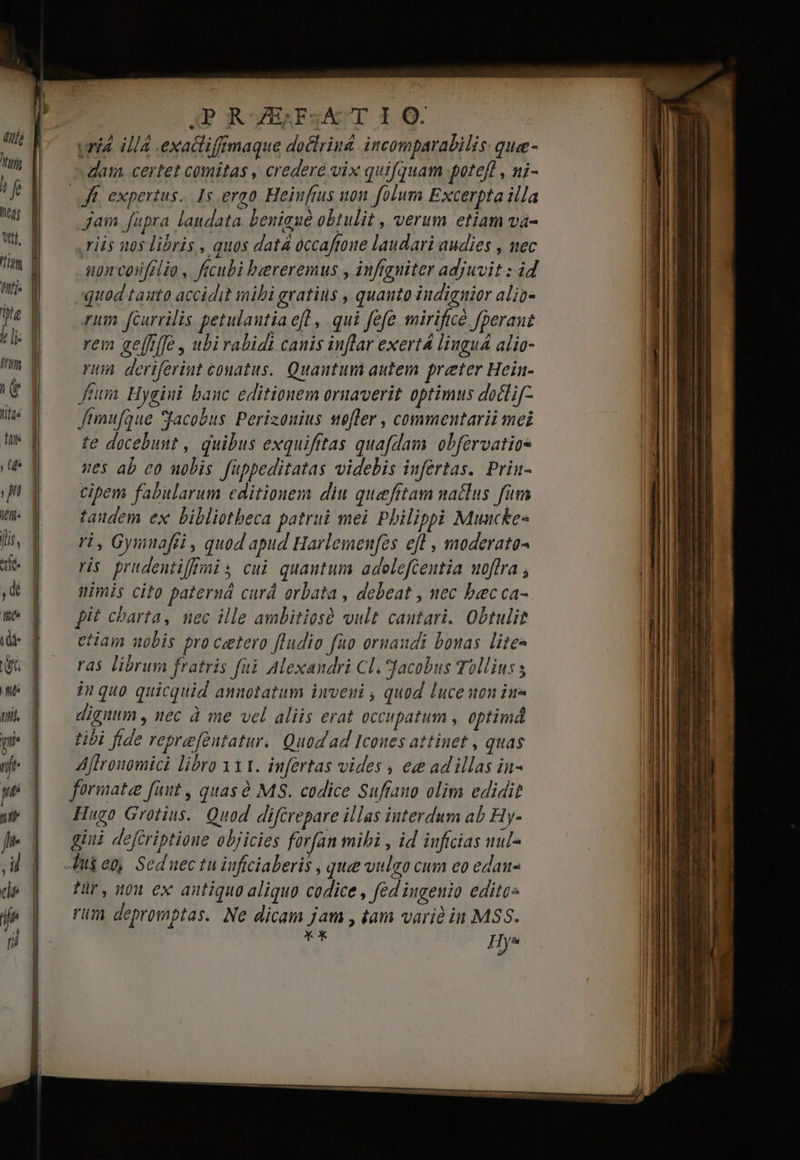 PRÆFATIO.
variâ illâ exactissimaque doctrinâ incomparabilis quæ-
dam certet comitas, credere vix quisquam potest, ni-
si expertus. Is ergo Heinsius non solum Excerpta illa
jam supra laudata benignè obtulit, verum etiam va-
riis nos libris, quos datâ occasione laudari audies, nec
non consilio, sicubi hæreremus, insigniter adjuvit: id
quod tanto accidit mihi gratius, quanto indignior alio-
rum scurrilis petulantia est, qui sese mirificè sperant
rem gessisse, ubi rabidi canis instar exertâ linguâ alio-
rum deriserint conatus. Quantum autem præter Hein-
sium Hygini hanc editionem ornaverit optimus doctis-
simusque Jacobus Perizonius noster, commentarii mei
te docebunt, quibus exquisitas quasdam observatio-
nes ab eo nobis suppeditatas videbis insertas. Prin-
cipem fabularum editionem diu quæsitam nactus sum
tandem ex bibliotheca patrui mei Philippi Muncke-
ri, Gymnasii, quod apud Harlemenses est, moderato-
ris prudentissimi; cui quantum adolescentia nostra,
nimis cito paternâ curâ orbata, debeat, nec hæc ca-
pit charta, nec ille ambitiosè vult cantari. Obtulit
etiam nobis pro cætero studio suo ornandi bonas lite-
ras librum fratris sui Alexandri Cl. Jacobus Tollius;
in quo quicquid annotatum inveni, quod luce non in-
dignum, nec à me vel aliis erat occupatum, optimâ
tibi fide repræsentatur. Quod ad Icones attinet, quas
Astronomici libro III. insertas vides, eæ ad illas in-
formatæ sunt, quas è MS. codice Susiano olim edidit
Hugo Grotius. Quod discrepare illas interdum ab Hy-
gini descriptione objicies forsan mihi, id inficias nul-
lus eo, Sed nec tu inficiaberis, quæ vulgo cum eo edan-
tur, non ex antiquo aliquo codice, sed ingenio edito-
rum depromptas. Ne dicam jam, tam variè in MSS.
** Hy-